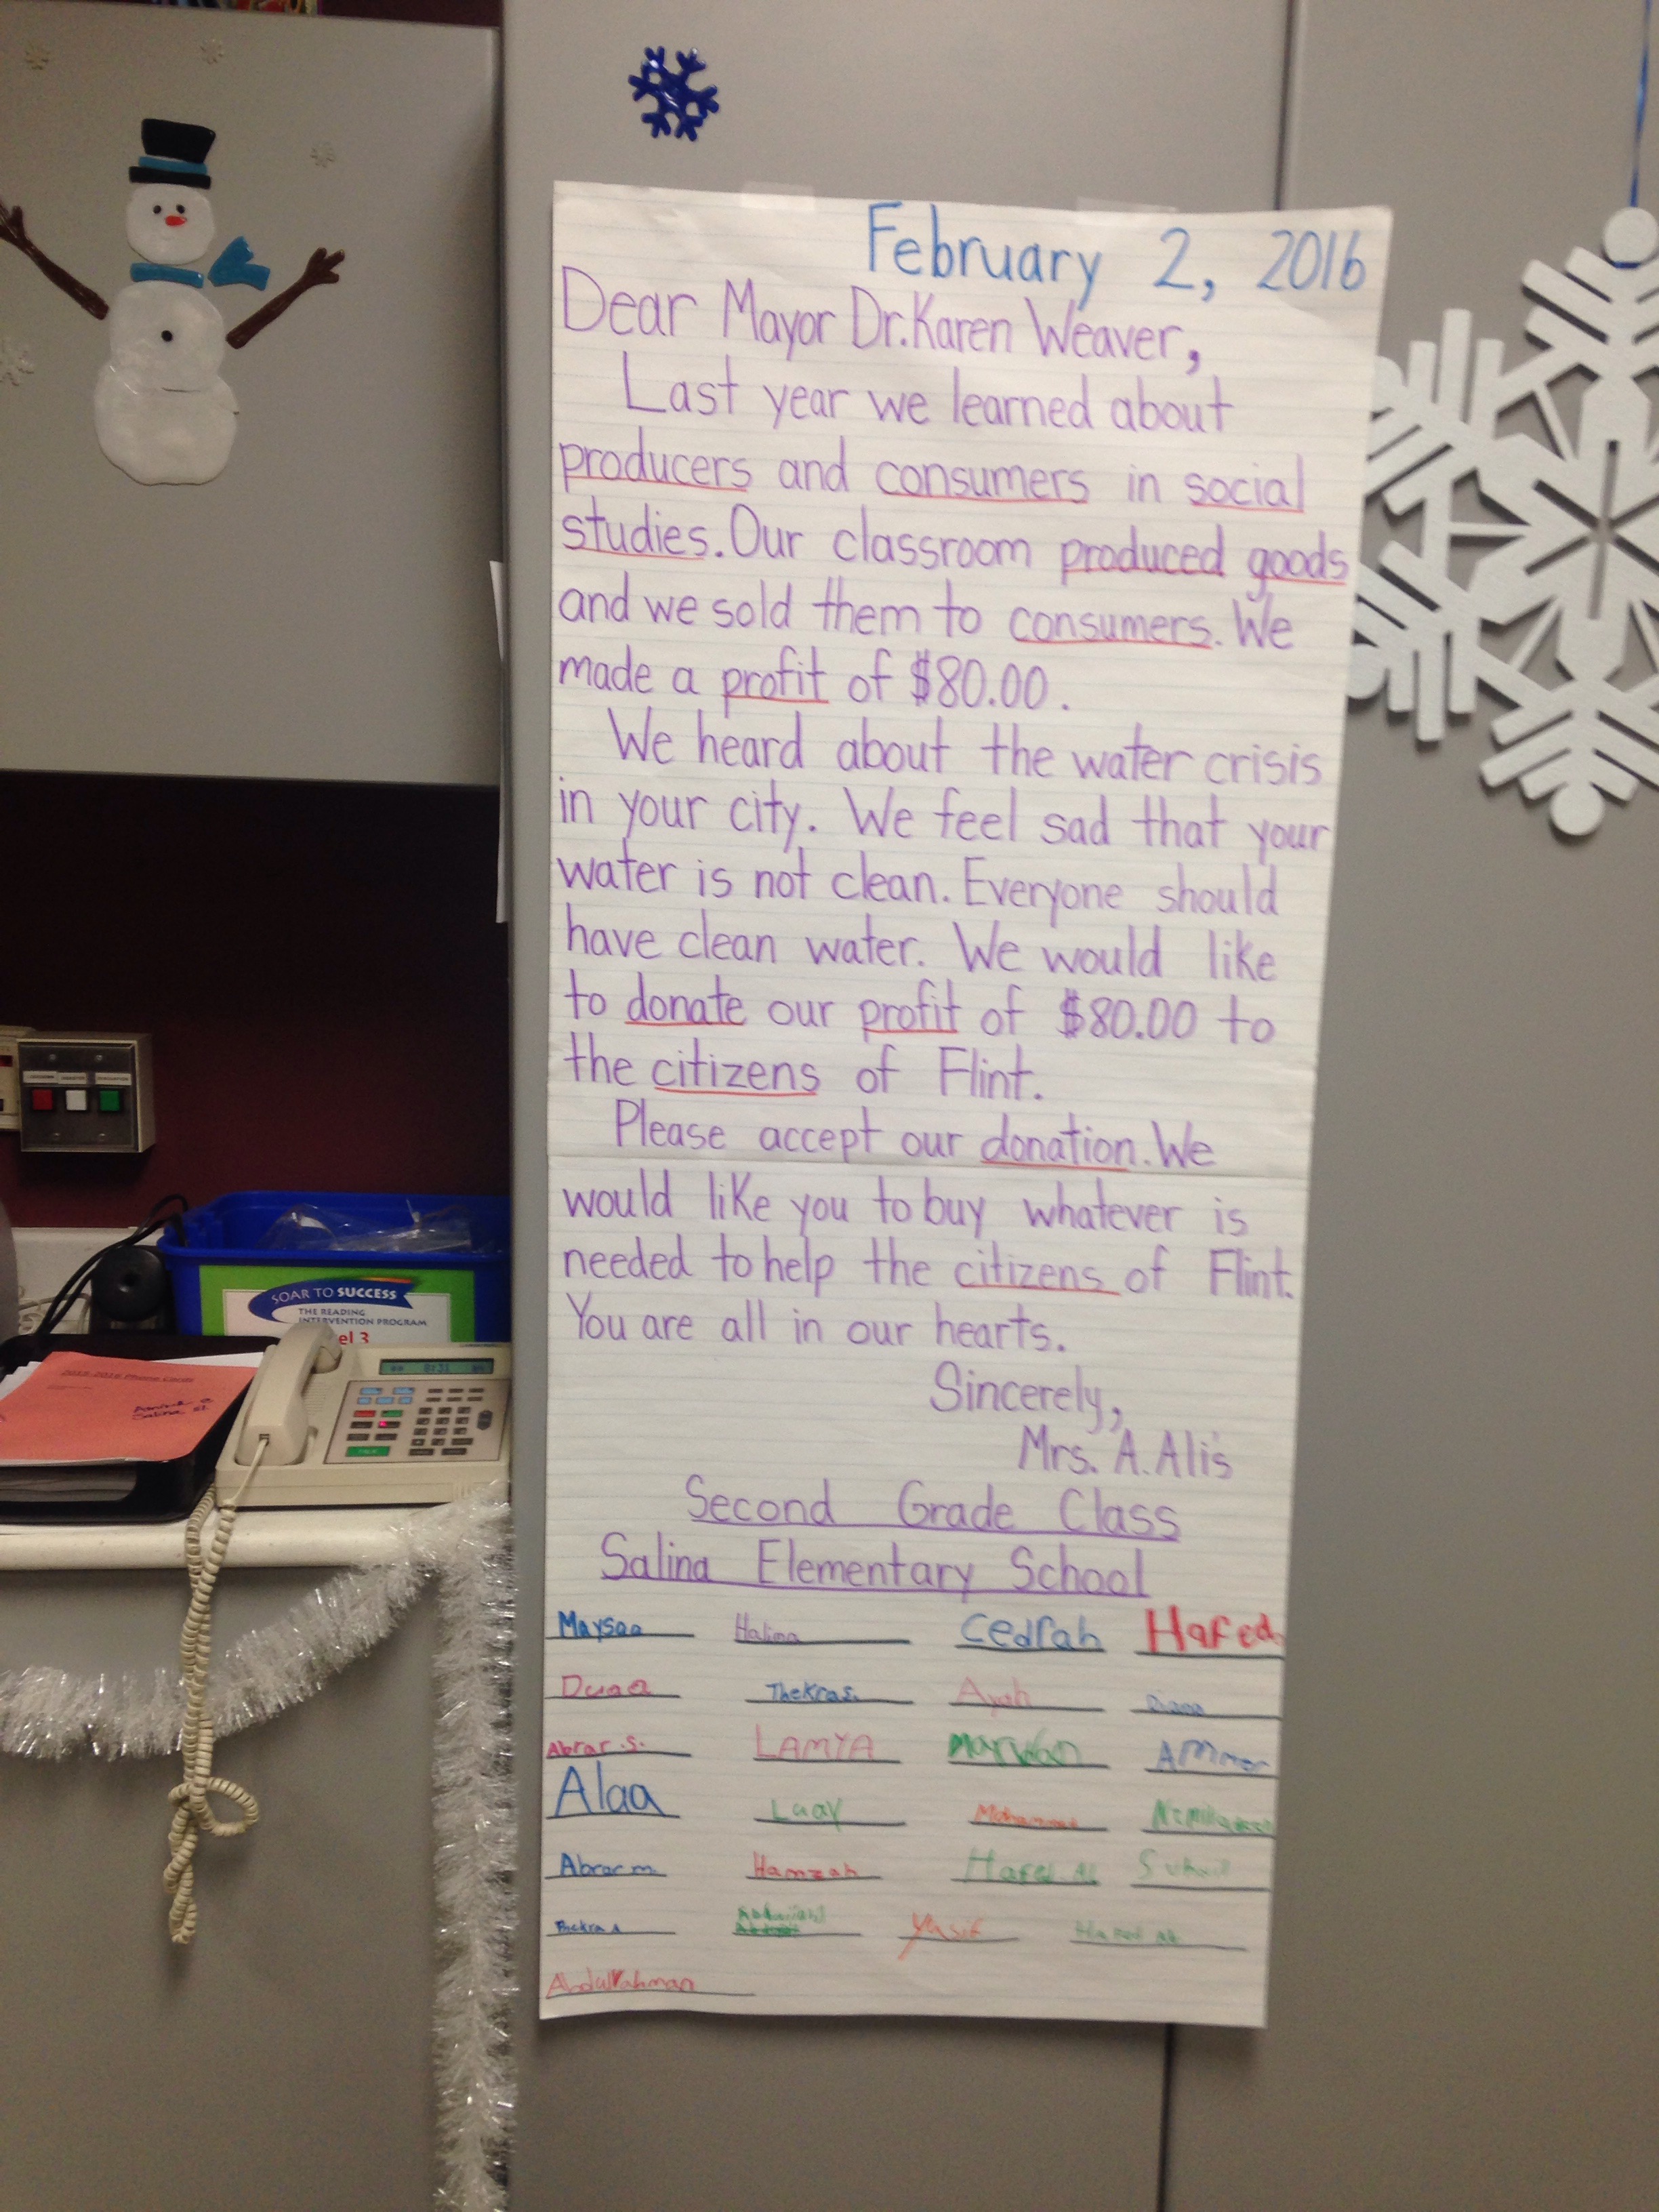 February 2, 2016
Dear Mayor Dr. Karen Weaver,
Last year we learned about
producers and consumers in social
studies. Our classroom produced goods
and we sold them to consumers. We
made a profit of $80.00.
We heard about the water crisis
in your city. We feel sad that your
water is not clean. Everyone should
have clean water. We would like
to donate our profit of $80.00 to
the citizens of Flint.
Please accept our donation. We
would like you to buy whatever is
needed to help the citizens of Flint.
You are all in our hearts.
Sincerely,
Mrs. A. Ali's
Second Grade Class
Salina Elementary School
Maysaa Halima Cedrah Hafed
Duaa Thekra S. Ayah Diana
Abrar .S. LAMYA Marwan Ammar
Alaa Luay Mohammed
Abrar m. Hamzah Hafed. AL Suhail
Yusif Hafed
AbdulRahman
SOAR TO SUCCESS
THE READING
INTERVENTION PROGRAM
el 3
2015-2016 Phone Cards
Salina
8:31